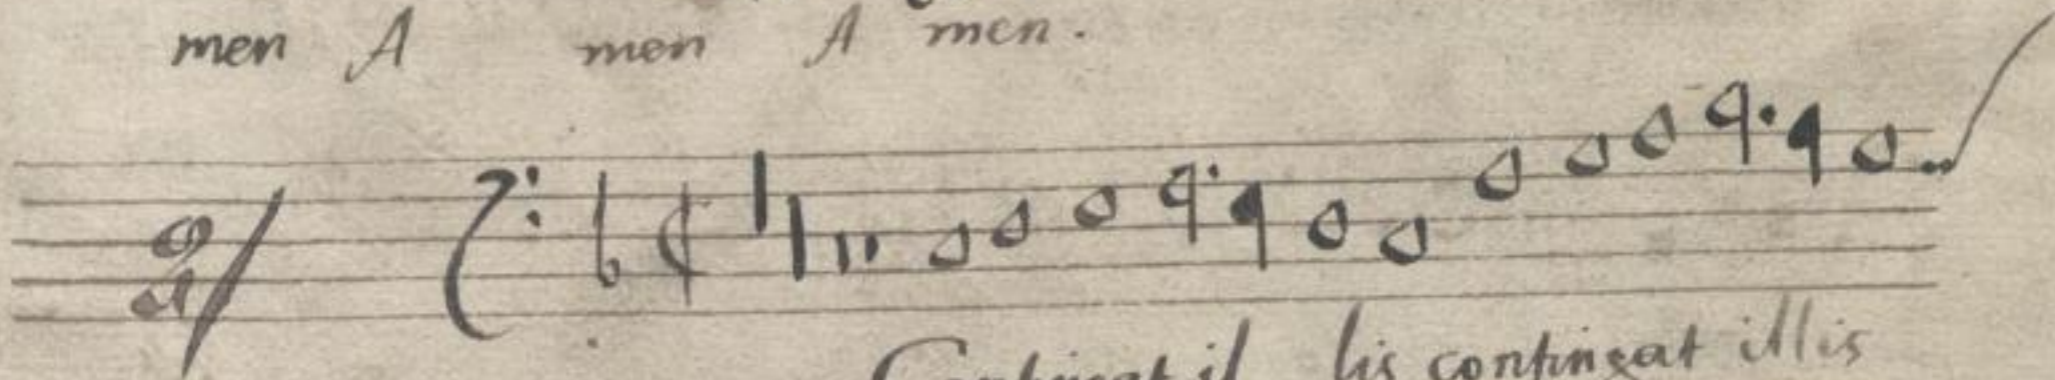 men A men A men.
Contingat il lis contingat illis